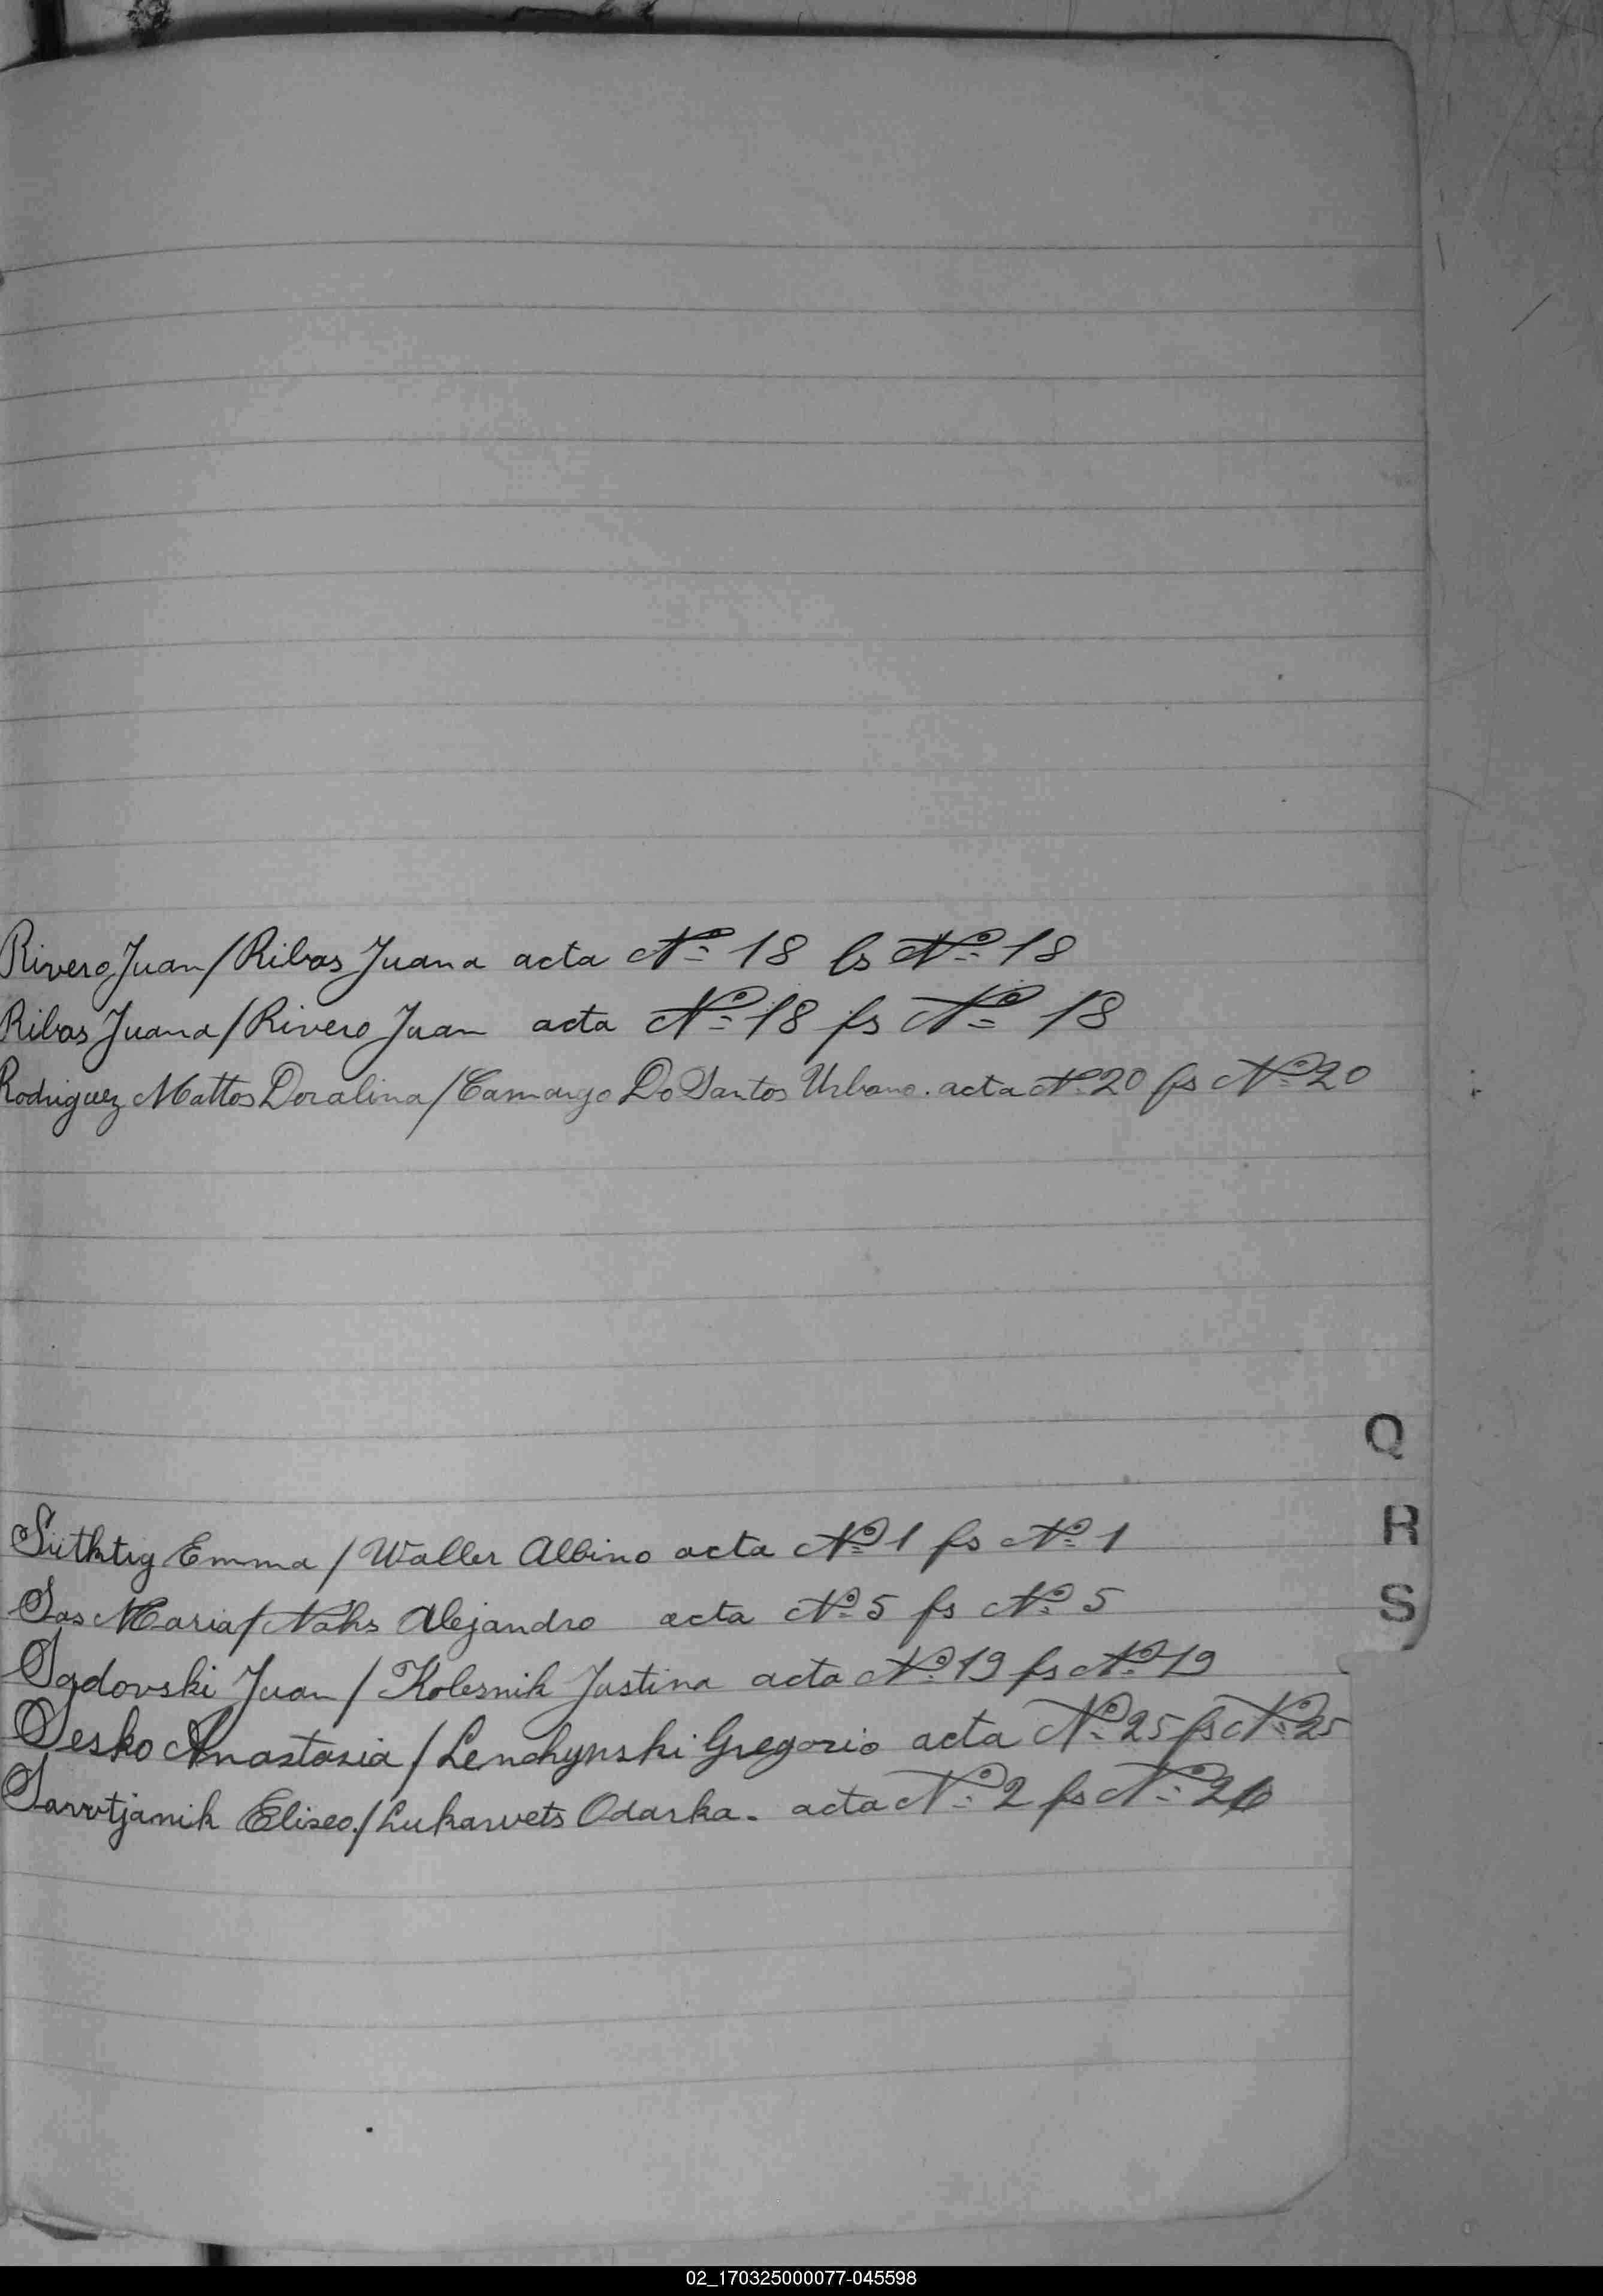 Rivero Juan/Ribas Juana acta Nº 18 fs Nº 18
Ribas Juana/Rivero Juan acta Nº 18 fs Nº 18
Rodriguez Mattos Doralina/Camargo Do Santos Urbano. acta Nº 20 fs Nº 20
Q
R
Emma / Waller Albino acta Nº 1 fs Nº 1
S
Sas Maria/ Nahs Alejandro acta Nº 5 fs Nº 5
Sadovski Juan / Kolesnik Justina acta Nº 19 fs Nº 19
Sesko Anastasia / Lenchynski Gregorio acta Nº 25 fs Nº 25
Eliseo./Lukarvets Odarka. acta Nº 2 fs Nº
02_170325000077-045598